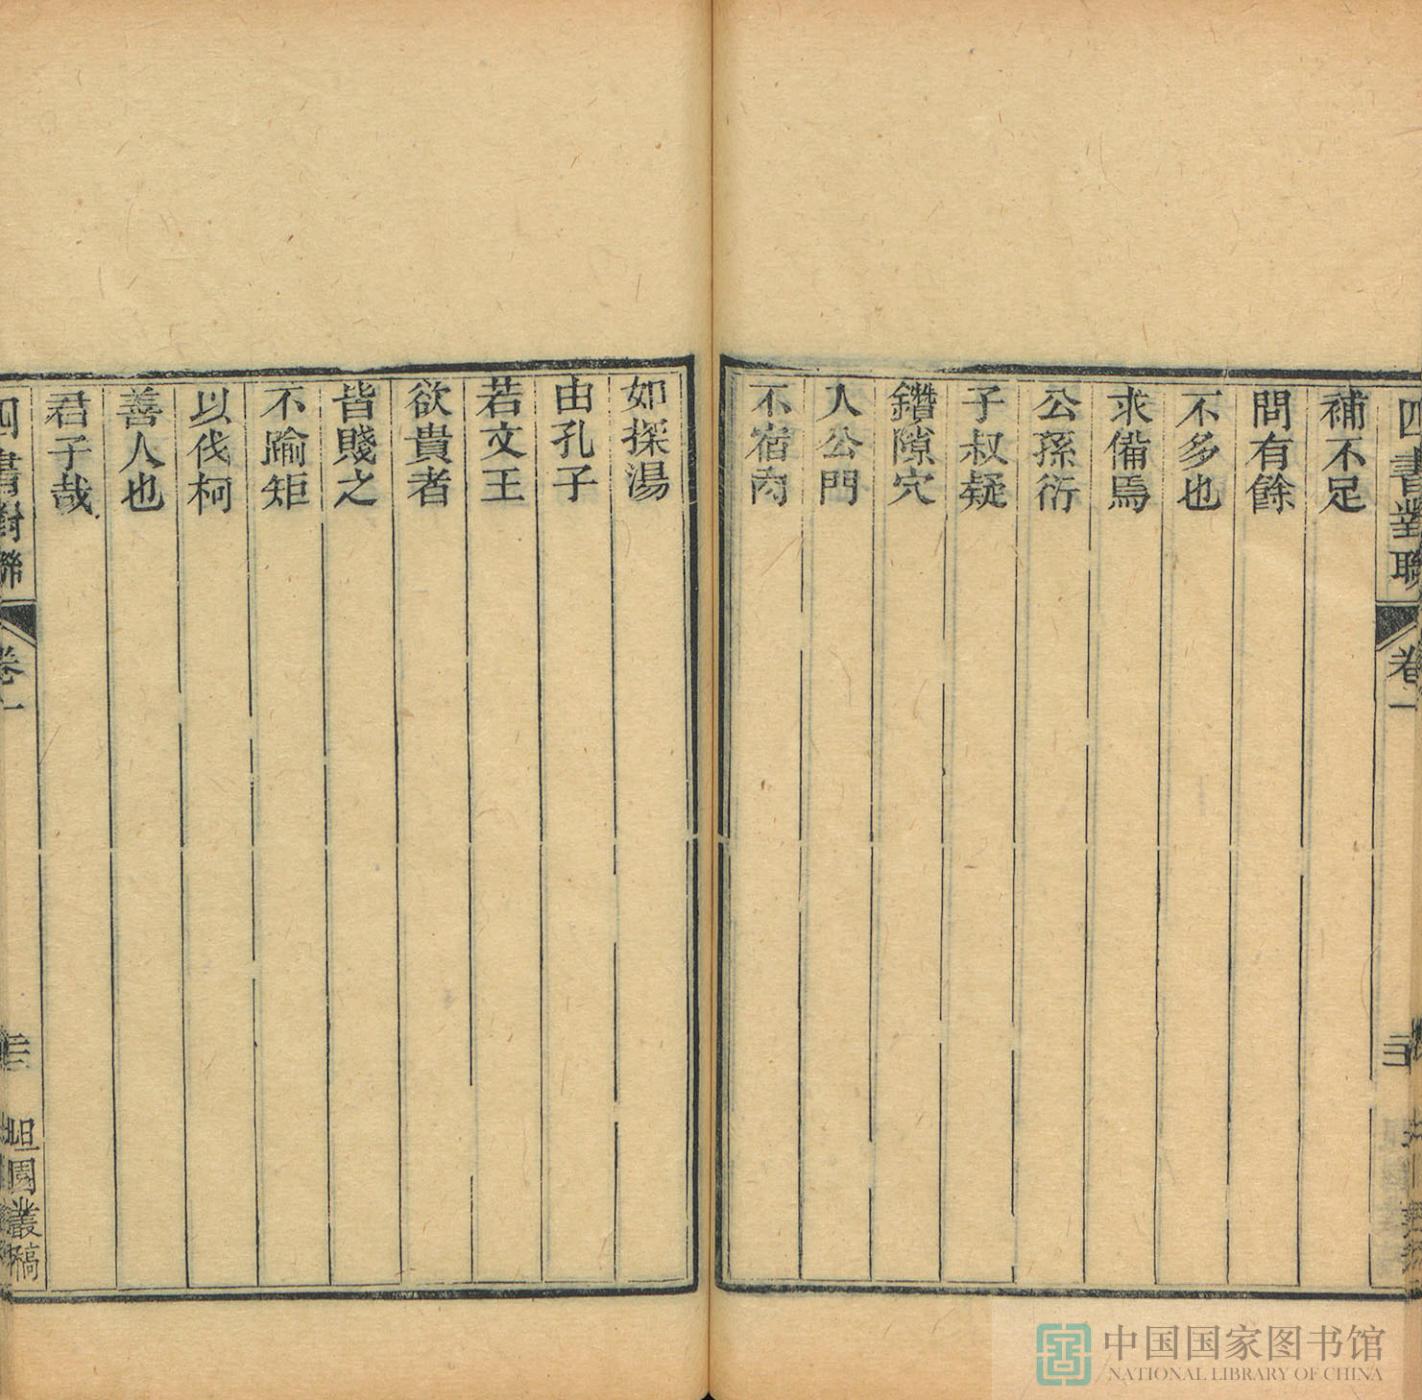 四書對聯
卷一
補不足
問有餘
不多也
求備焉
公孫衍
子叔疑
鑽隙穴
入公門
不宿肉
如探湯
由孔子
若文王
欲貴者
皆賤之
不踰矩
以伐柯
善人也
君子哉
四書對聯
卷一
坦園叢稿
中国国家图书馆
NATIONAL LIBRARY OF CHINA